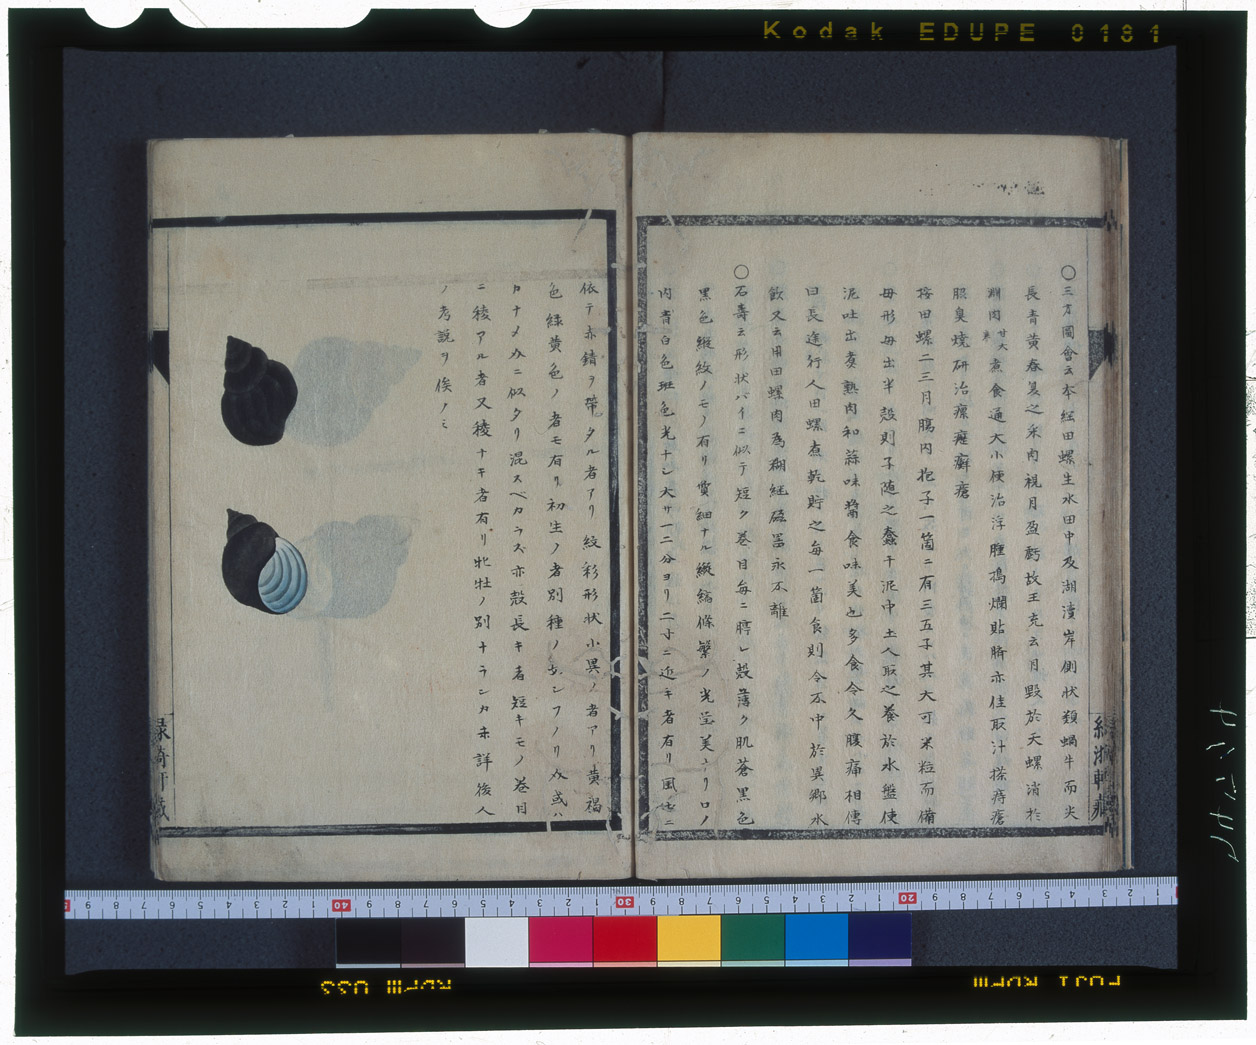 Kodak EDUPE 0181
○三才圖會云本經田螺生水田中及湖瀆岸側状類蝸牛而尖
長青黄春夏之采肉視月盈虧故王充云月毀於天螺消於
淵肉 甘大寒 煮食通大小便治浮腫搗爛貼臍亦佳取汁搽痔瘡
胆臭燒研治瘰癧癬瘡
按田螺二三月膓内抱子一箇ニ有三五子其大可米粒而備
母形毎出半殻則子随之蠢于泥中土人取之養於水盤使
泥吐出煮熟肉和蒜味醬食味美也多食令久腹痛相傳
曰長途行人田螺煮乾貯之毎一箇食則令不中於異郷水
飲又云用田螺肉為糊継磁器永不離
○石壽云形状バイニ似テ短ク巻目毎ニ脝レ殻薄ク肌蒼黒色
黒色縦紋ノモノ有リ質細ナル縦縞條繁ノ光莹美ナリロノ
内青白色班色光ナシ大サ一二分ヨリ二寸ニ近キ者有リ風土ニ
依テ赤錆ヲ帶タル者アリ紋彩形状小異ノ者アリ黄褐
色緑黄色ノ者モ有リ初生ノ者別種ノ
ロナメ ニ似タリ混スベカラズ亦殻長キ者短キモノ巻目
ニ稜アル者又稜ナキ者有リ牝牡ノ別ナランカ未詳後人
ノ考説ヲ俟ノミ
RDPIII USS
FUJI RDPIII